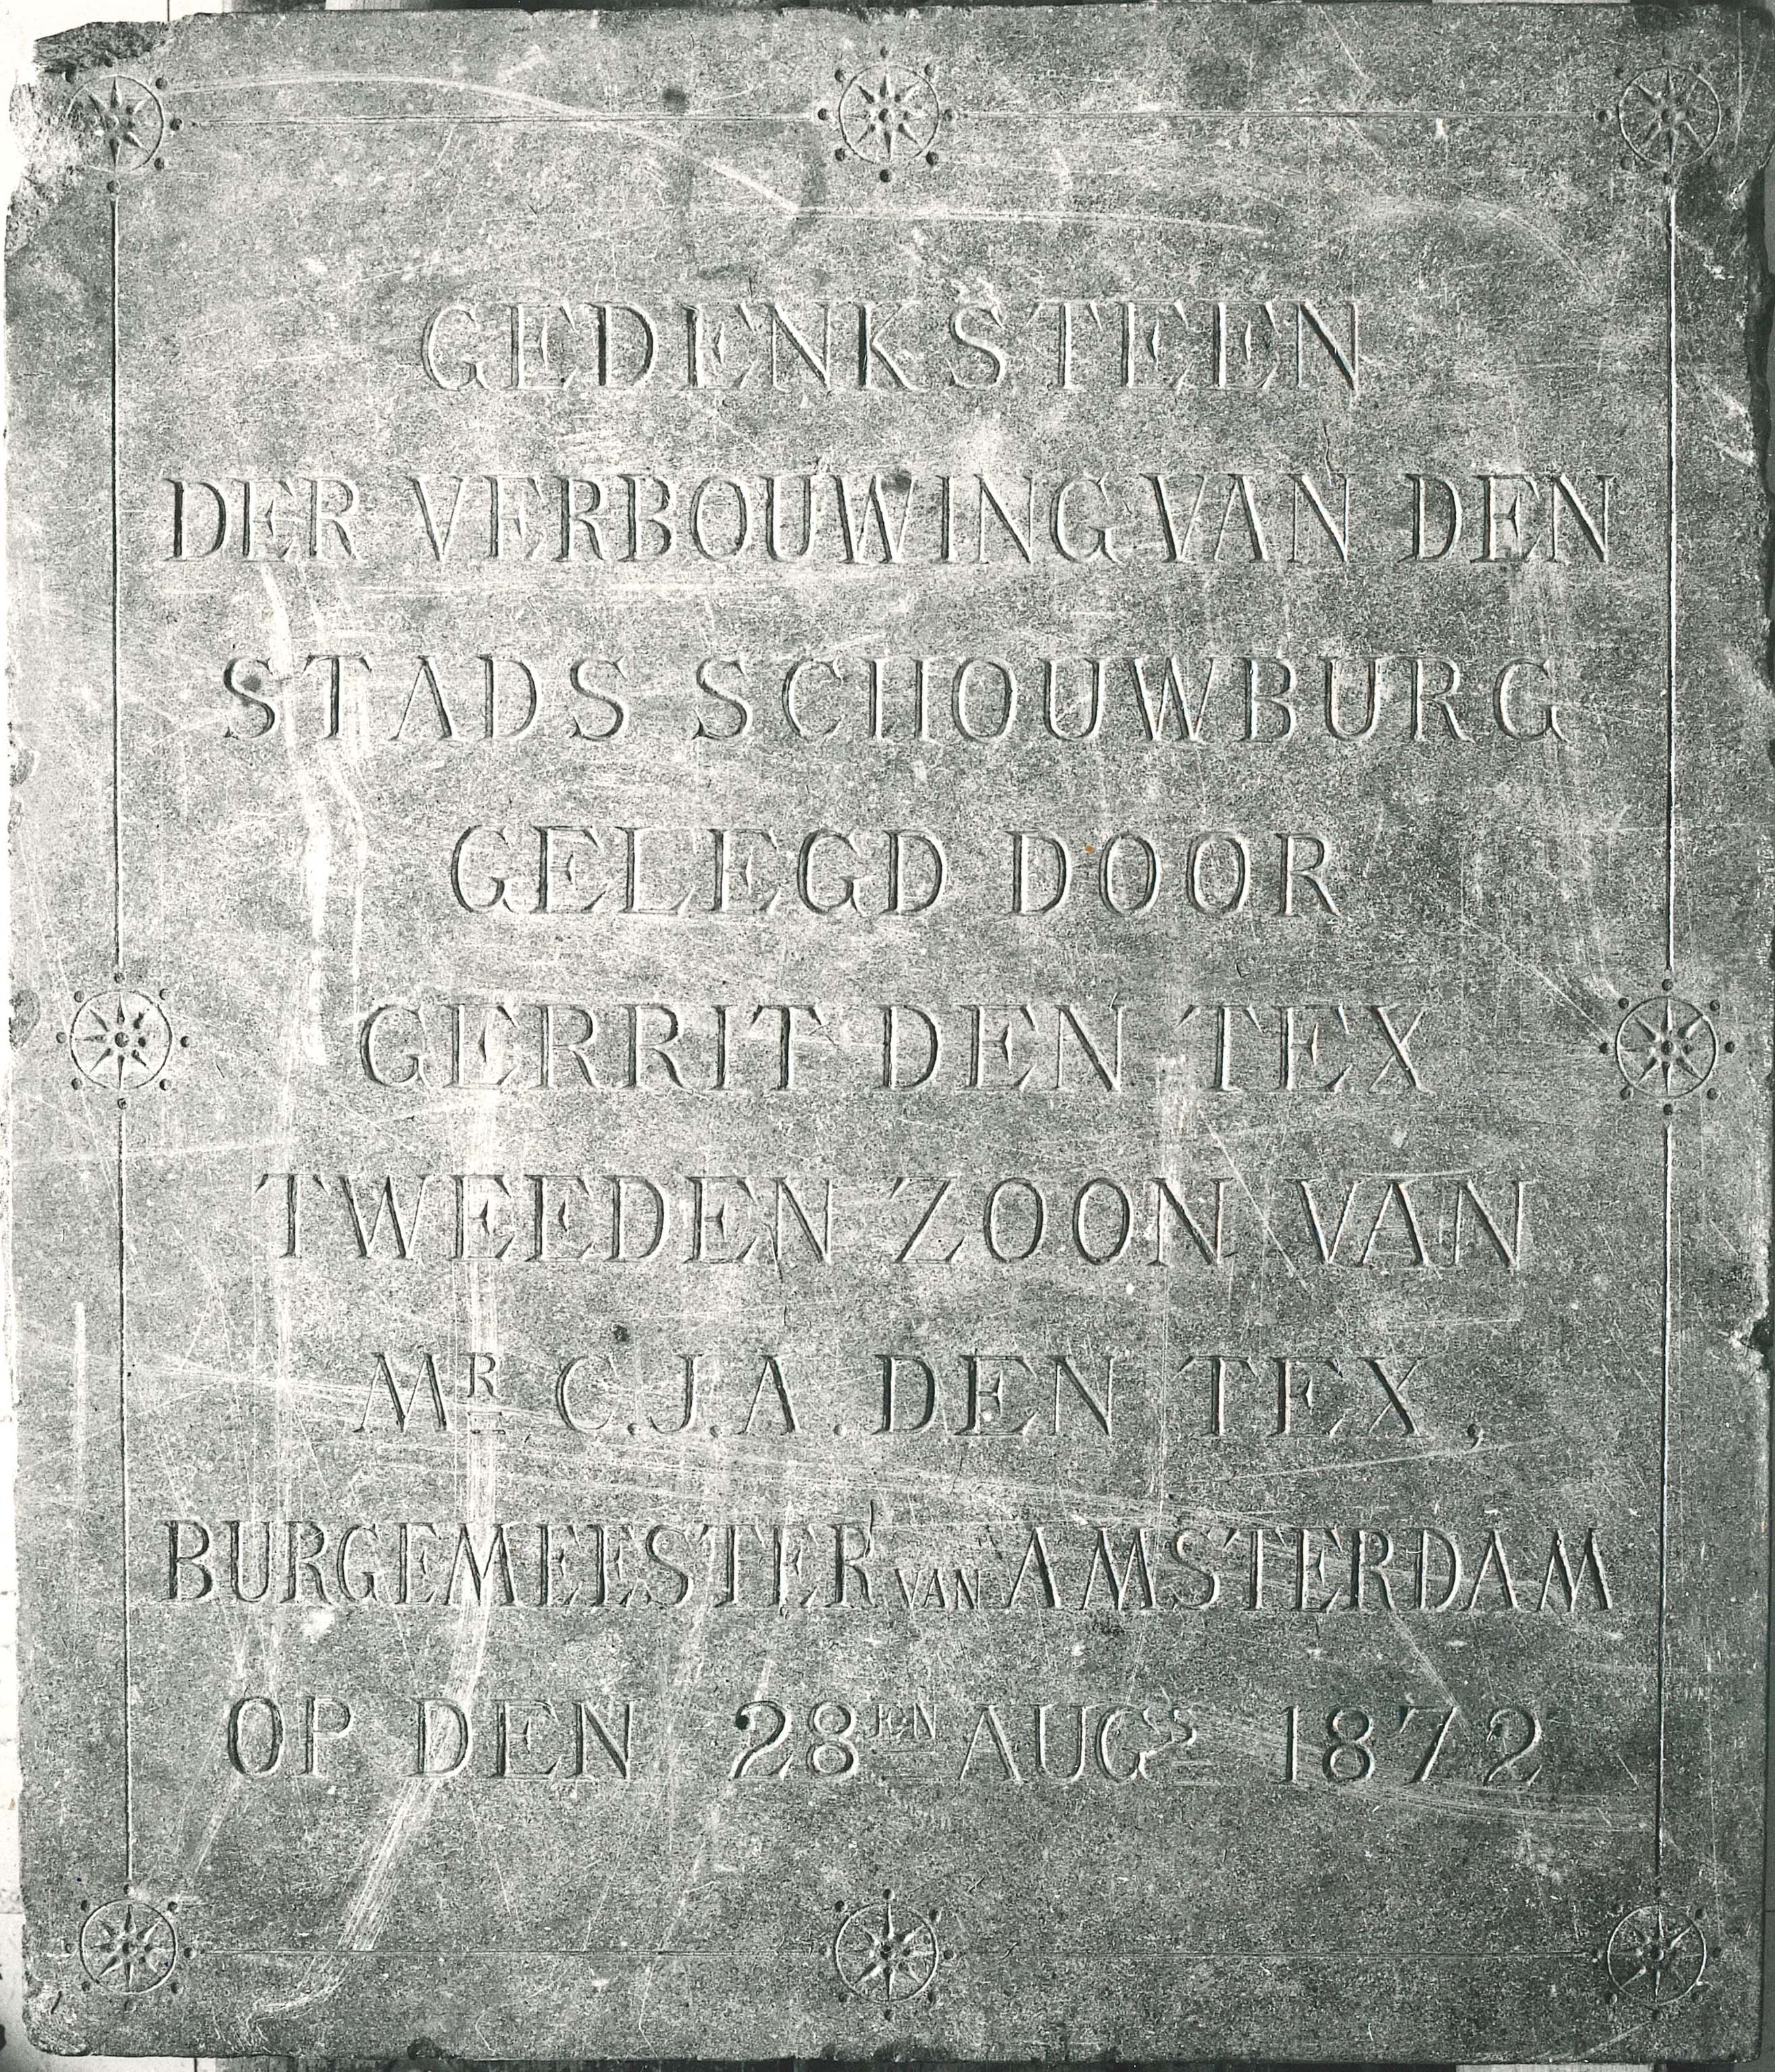 GEDENKSTEEN
DER VERBOUWING VAN DEN
STADS SCHOUWBURG
GELEGD DOOR
GERRIT DEN TEX
TWEEDEN ZOON VAN
MR C.J.A. DEN TEX,
BURGEMEESTER VAN AMSTERDAM
OP DEN 28EN AUGS 1872